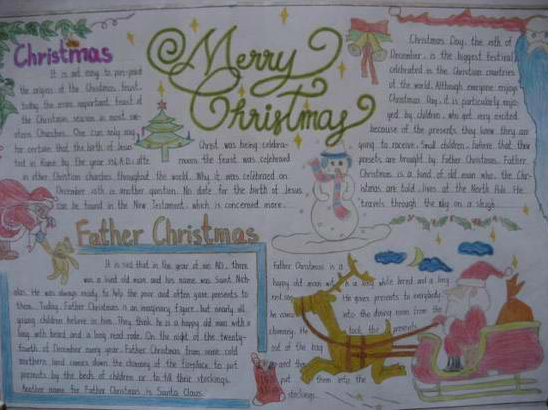 Christmas
It is not easy to pin-point
the origins of the Christmas feast,
today the most important feast of
the Christmas season in most wes-
tern Churches. One can only say
for certain that the birth of Jesus
Christ was being celebra-
ted in Rome by the year 336 A.D; afte
rwards the feast was celebrated
in other Christian churches throughout the world. Why it was celebrated on
December 25th is another question. No date for the birth of Jesus
can be found in the New Testament, which is concerned more
Merry
Christmas
Christmas Day, the 25th of
December, is the biggest festival
celebrated in the Christian countries
of the world. Although everyone enjoys
Christmas Day, it is particularly enjo-
yed by children, who get very excited
because of the presents they know they are
going to receive. Small children believe that their
presents are brought by Father Christmas. Father
Christmas is a kind of old man who, the Chri-
stmas are told, lives at the North Pole. He
travels through the sky on a sleigh
Father Christmas
It is said that in the year of AD, there
was a kind old man and his name was Saint Nich-
olas. He was always ready to help the poor and often gave presents to
them. Today, Father Christmas is an imaginary figure, but nearly all
young children believe in him. They think he is a happy old man with a
long white beard and a long red robe. On the night of the twenty-
fourth of December every year, Father Christmas from some cold
northern land comes down the chimney of the fireplace to put
presents by the beds of children or to fill their stockings.
Another name for Father Christmas is Santa Claus.
Father Christmas is a
happy old man with a long white beard and a long
red He gives presents to everybody
he comes into the dining room from the
chimney. He took the presents
out of the bag
and then
put them into the
stockings.